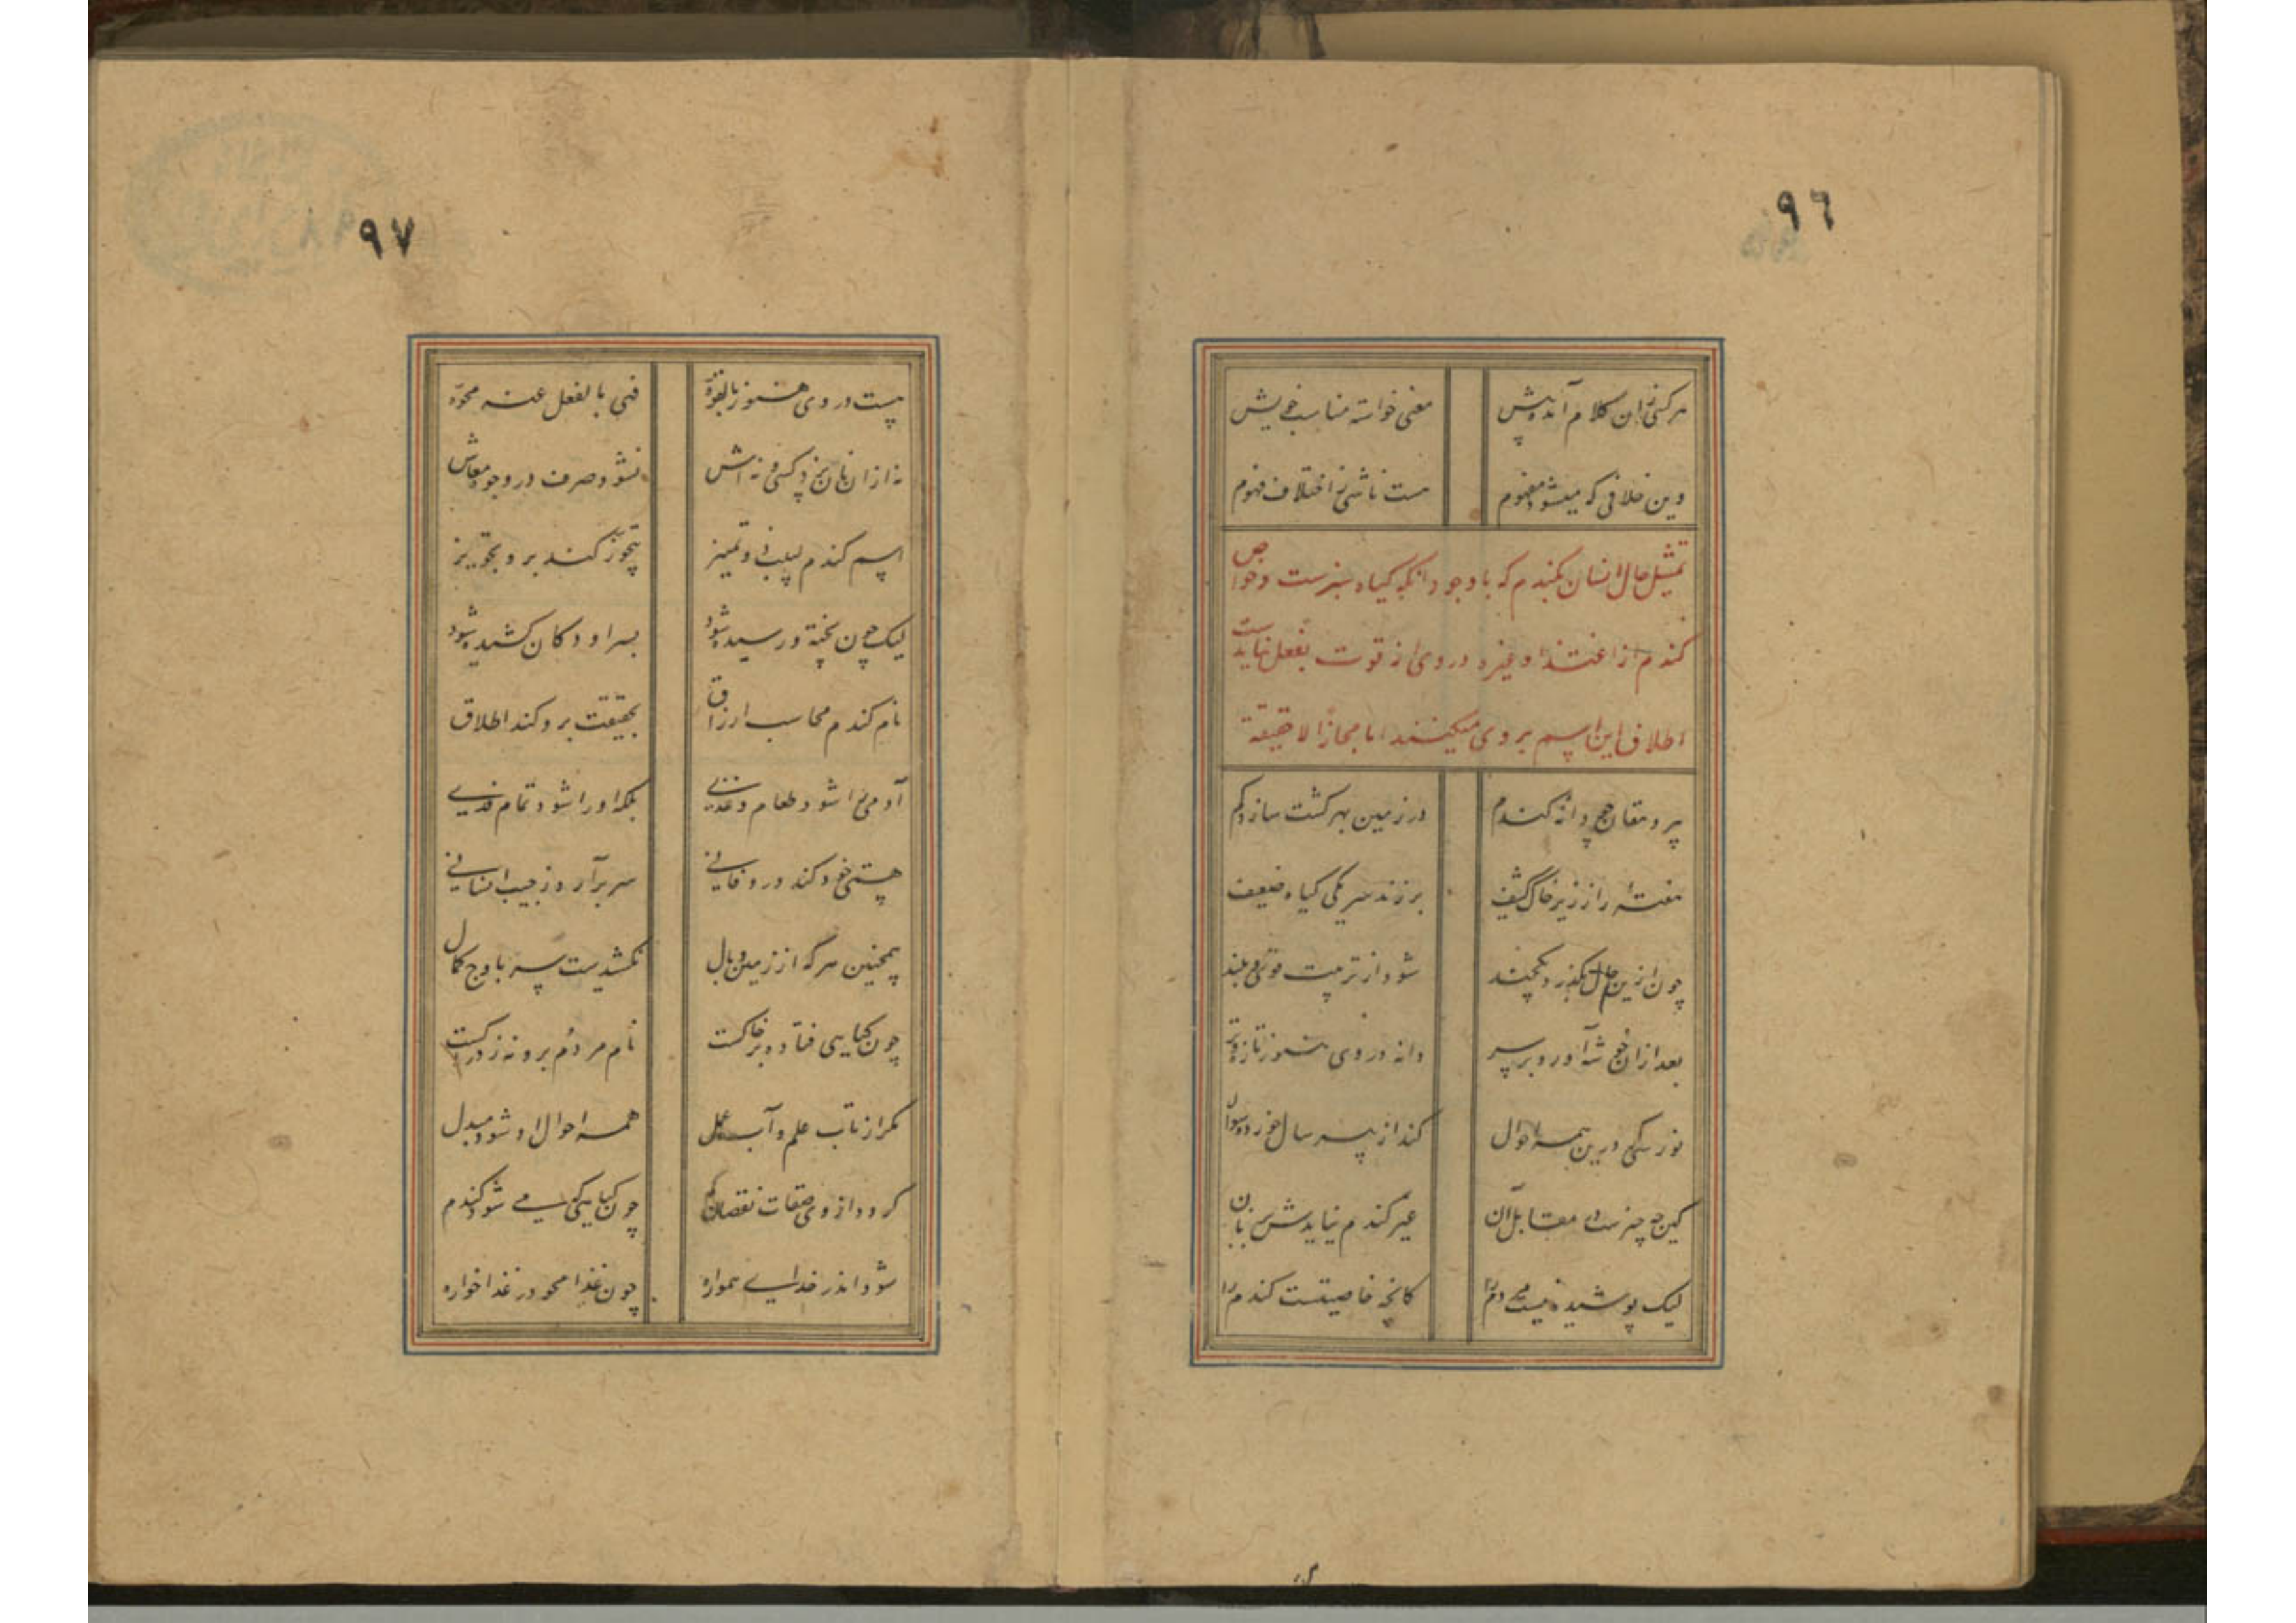 ٩٦
هر کسی زان کلام آمده پیش معنی خواسته مناسب خویش
وین خلافی که میشود مفهوم هست ناشی ز اختلاف فهوم
تمثیل حال انسان بکندم که با وجود آنکه کیاه سبزست و خواص
کندم از اغتذا و غیره در وی از قوت بفعل نیامده است
اطلاق این اسم بر وی میکنند اما مجازا لا حقیقة
پیر دهقان چو دانه کندم در زمین بهر کشت سازد کم
هفته را ز زیر خاک کثیف بر زند سر یکی کیاه ضعیف
چون ازین حال بکذرد یکچند شود از تربیت قوی و بلند
بعد ازان خوشه آورد بر سر دانه در وی هنوز تازه و تر
نورسی کر درین همه احوال کند از پیر سال خورد سؤال
کین چه چیزست در مقابل آن غیر کندم نیایدش بزبان
لیک پوشیده نیست بر مردم کانچه خاصیتست کندم را
٩٧
هست در وی هنوز بالقوة فهی بالفعل عنه محوّة
نه ازان نان پزد کسی نه آش نشود صرف در وجوه معاش
اسم کندم لبیب دانا و تمیز تجوز کند برو تجویز
لیک چون پخته و رسیده شود بسر او دکان کشیده شود
نام کندم محاسب ارزاق بحقیقت برو کند اطلاق
آدمی را شود طعام و غذی بلکه او را شود تمام فدی
هستی خود کند درو فانی سر برآرد ز جیب انسانی
همچنین هر که از زمین وبال نکشیدست سر باوج کمال
چون کیاهی فتاده بر خاکست نام مردم برو نه ز ادراکست
مکر از تاب علم و آب عمل همه احوال او شود مبدل
کردد از وی صفات نقصان کم چون کیاهی که می شود کندم
شود اندر خدای همواره چون غذا محو در غذا خواره